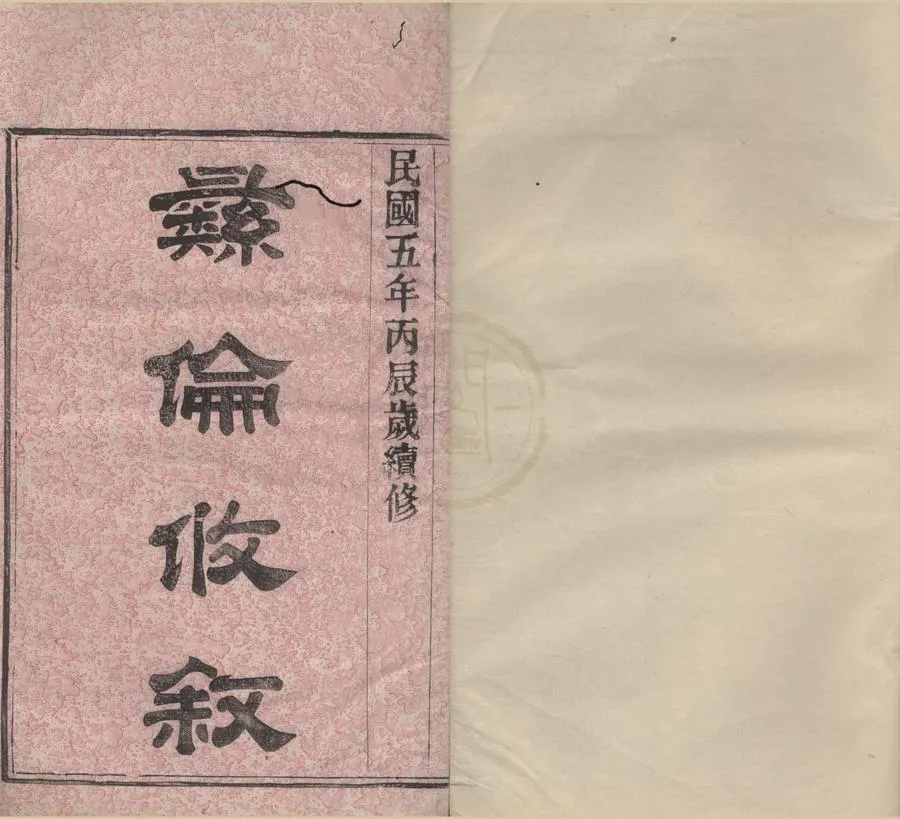 民國五年丙辰歲續修
彝倫攸敘